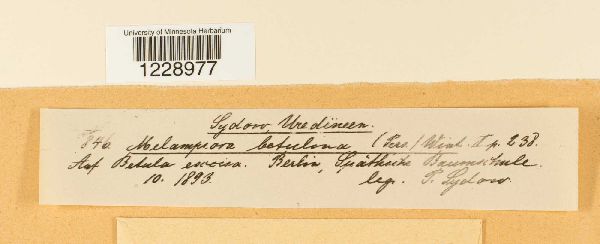 University of Minnesota Herbarium
1228977
Sydow, Uredineen.
846. Melampsora betulina (Pers.) Wint. I p. 238.
Auf Betula excisa. Berlin, Späthsche Baumschule.
10. 1893. leg. P. Sydow.